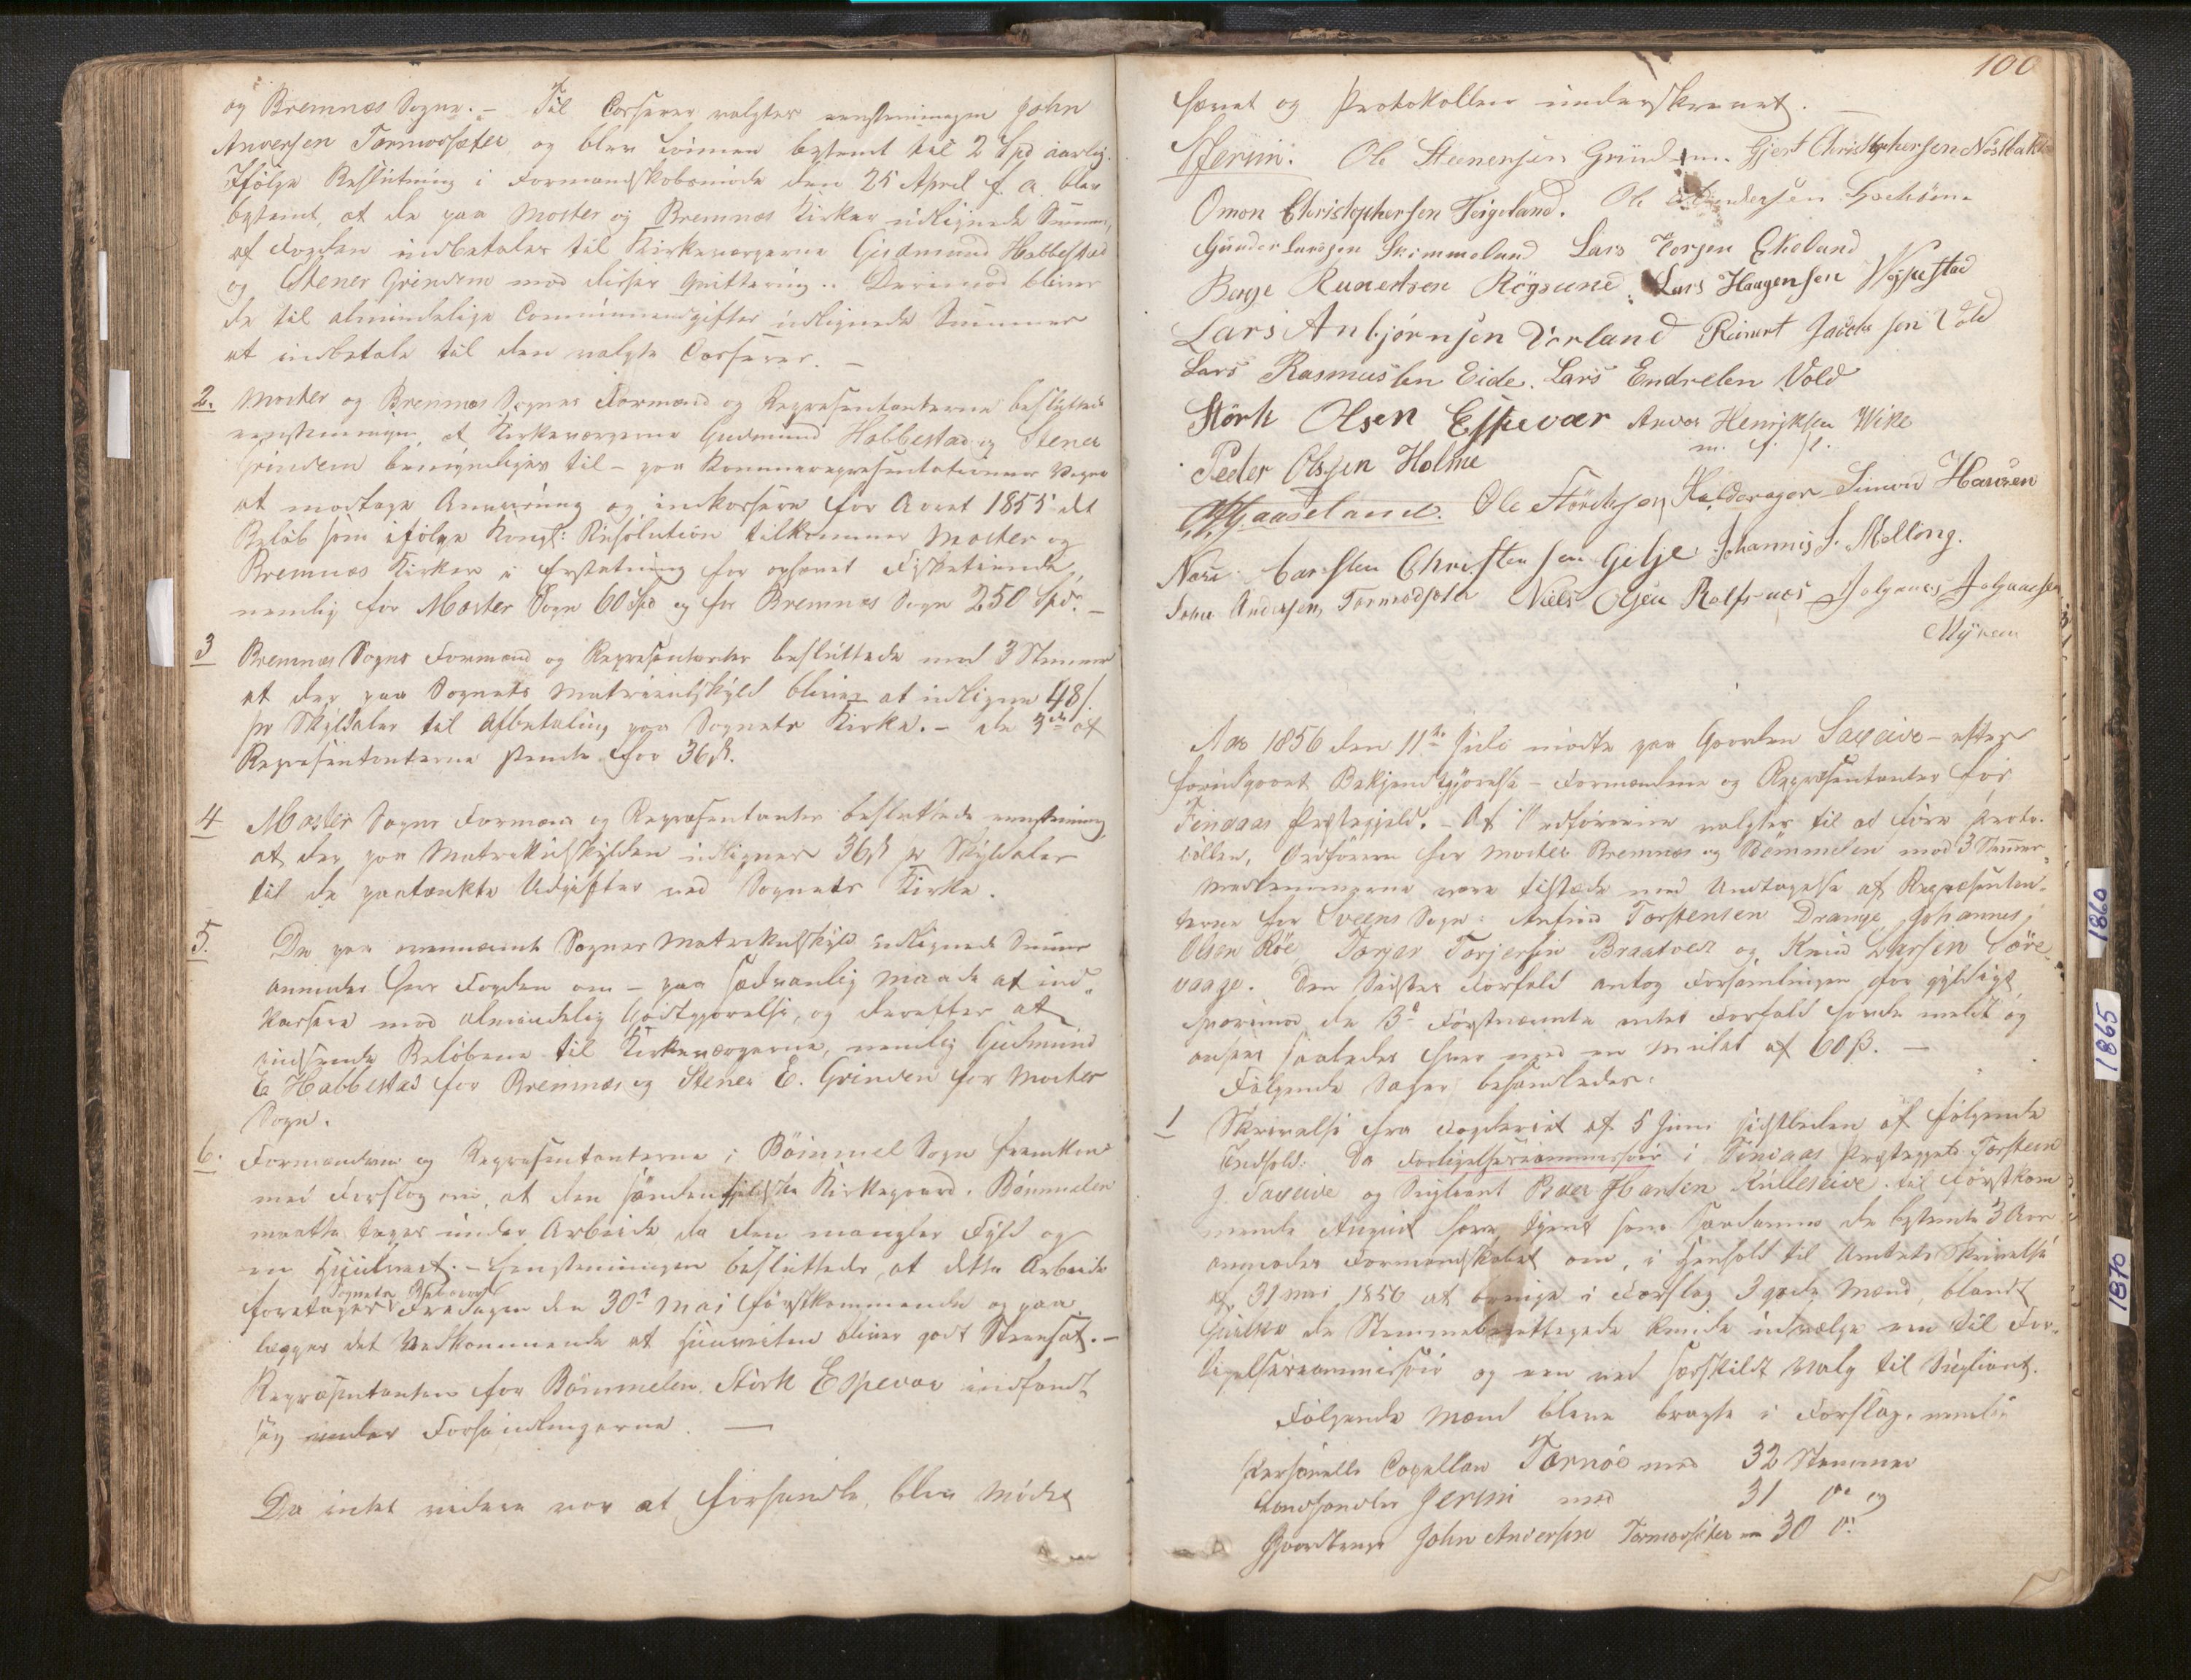 og Bremnæs Sogne. – Til Casserer valgtes eenstemmigen John
Andersen Tormodsæter og blev Lönnen bestemt til 2 Spd aarlig.
Ifölge Beslutning i Formandskabsmöde den 25 April f. a. blev
bestemt, at de paa Moster og Bremnæs Kirker udlignede Summer,
af Fogden indbetales til Kirkeværgerne Gudmund Habbestad
og Stener Grindem mod disses Qvittering.. Derimod bliver
de til almindelige Communeudgifter udlignede Summer
at indbetale til den valgte Casserer. –
2. Moster og Bremnæs Sognes Formænd og Repræsentanterne besluttede
eenstemmigen, at Kirkeværgerne Gudmund Habbestad og Stener
Grindem bemyndiges til – paa Kommunerepræsentationens Vegne
at modtage Anvisning og indkassere for Aaret 1855 det
Belöb som ifölge Kongl: Resolution tilkommer Moster og
Bremnæs Kirker i Erstatning for ophævet Fisketiende,
nemlig for Moster Sogn 60 Spd og for Bremnæs Sogn 250 Spd. –
3 Bremnæs Sogns Formænd og Repræsentanter besluttede med 3 Stemmer
at der paa Sognets Matriculskyld bliver at udligne 48 ß.
pr Skylddaler til Afbetaling paa Sognets Kirke. – de 3de af
Repræsentanterne stemte for 36 ß.
4 Moster Sogns Formænd og Repræsentanter besluttede eenstemmig
at der paa Matrikulskylden udlignes 36 ß pr Skylddaler
til de paatænkte Udgifter ved Sognets Kirke.
5. De paa ovennævnte Sognes Matrikulskyld udlignede Summer
anmodes Herr Fogden om – paa sædvanlig Maade at ind-
kassere mod almindelig Godtgjörelse, og derefter at
indsende Belöbene til Kirkeværgerne, nemlig Gudmund
E Habbestad for Bremnæs og Stener E. Grindem for Moster
Sogn.
6. Formændene og Repræsentanterne i Bömmel Sogn fremkom
med Forslag om, at den söndenfjeldske Kirkegaard i Bömmelen
maatte tages under Arbeide da den mangler Fyld og
en Huulvest. – Eenstemmigen besluttede, at dette Arbeide
Sognets Beboere
foretages Fredagen den 30te Mai förstkommende og paa
lægges det Vedkommende at bliver godt Steensat. –
Repræsentanten for Bömmelen, Störk Espevær indfandt
sig under Forhandlingerne. –
Da intet videre var at forhandle, blev Mödet
100
hævet og Protokollen underskrevet.
Jferm. Ole Steenersen Grindem. Gjert Christophersen Nösbak
Omon Christophersen Teigeland. Ole Andersen
Gunder Larsen Svimmeland Lars Torjen Ekeland
Berge Runertsen Rögsund. Lars Haagensen Vespestad
Lars Anbjörnsen Vorland Reinert Jacobsen Vold
Lars Rasmussen Eide. Lars Endresen Vold
Störk Olsen Espevær Anders Henriksen Wike
m. f. p.
Peder Olsen Holme
Gaaseland. Ole Störksen Halderager Simon Hansen
Næss Carsten Christensen Gilje Johannis J. Melling.
John Andersen Tormodsæter Niels Olsen Rolfsnæs
Myhren
Aar 1856 den 11te Juli mödte paa Gaarden Saxeive – efter
forudgaaet Bekjendtgjörelse – Formændene og Repræsentanter for
Findaas Præstegjeld. – Af Ordförerne valgtes til at före Proto-
collen, Ordföreren for Moster Bremnæs og Bömmelen med 3 Stemmer
Medlemmerne vare tilstæde med Undtagelse af Repræsentan-
terne for Sveens Sogn: Anfind Torstensen Drange, Johannes
Olsen Röe, Torger Torjersen Braatvedt og Knud Larsen Söre
vaage. Den Sidstes Forfald antog Forsamlingen for gyldigt
hvorimod de 3de Förstnævnte intet Forfald havde meldt og
ansees saaledes hver med en Mulct af 60 ß. –
Fölgende Sager behandledes:
1 Skrivelse fra Fogderiet af 5 Juni sidstleden af fölgende
Indhold: Da Forligelsescommissair i Findaas Præstegjeld Torstein
J. Saxeive og Supleant Baar Hansen Kulleseive til förstkom
mende August have tjent som saadanne de bestemte 3 Aar
anmodes Formandskabet om, i Henhold til Amtets Skrivelse
af 31 Mai 1856 at bringe i Forslag 3 gode Mænd, blandt
hvilke de Stemmeberettigede kunde udvælge en til For-
ligelsescommissair og een ved særskildt Valg til Supleant.
Fölgende Mænd bleve bragte i Forslag, nemlig
personelle Capellan Tærnöe med 32 Stemmer
Landhandler Jerm med 31 do og
Gaardbruger John Andersen Tormodsæter m 30 do
1860
1865
1870